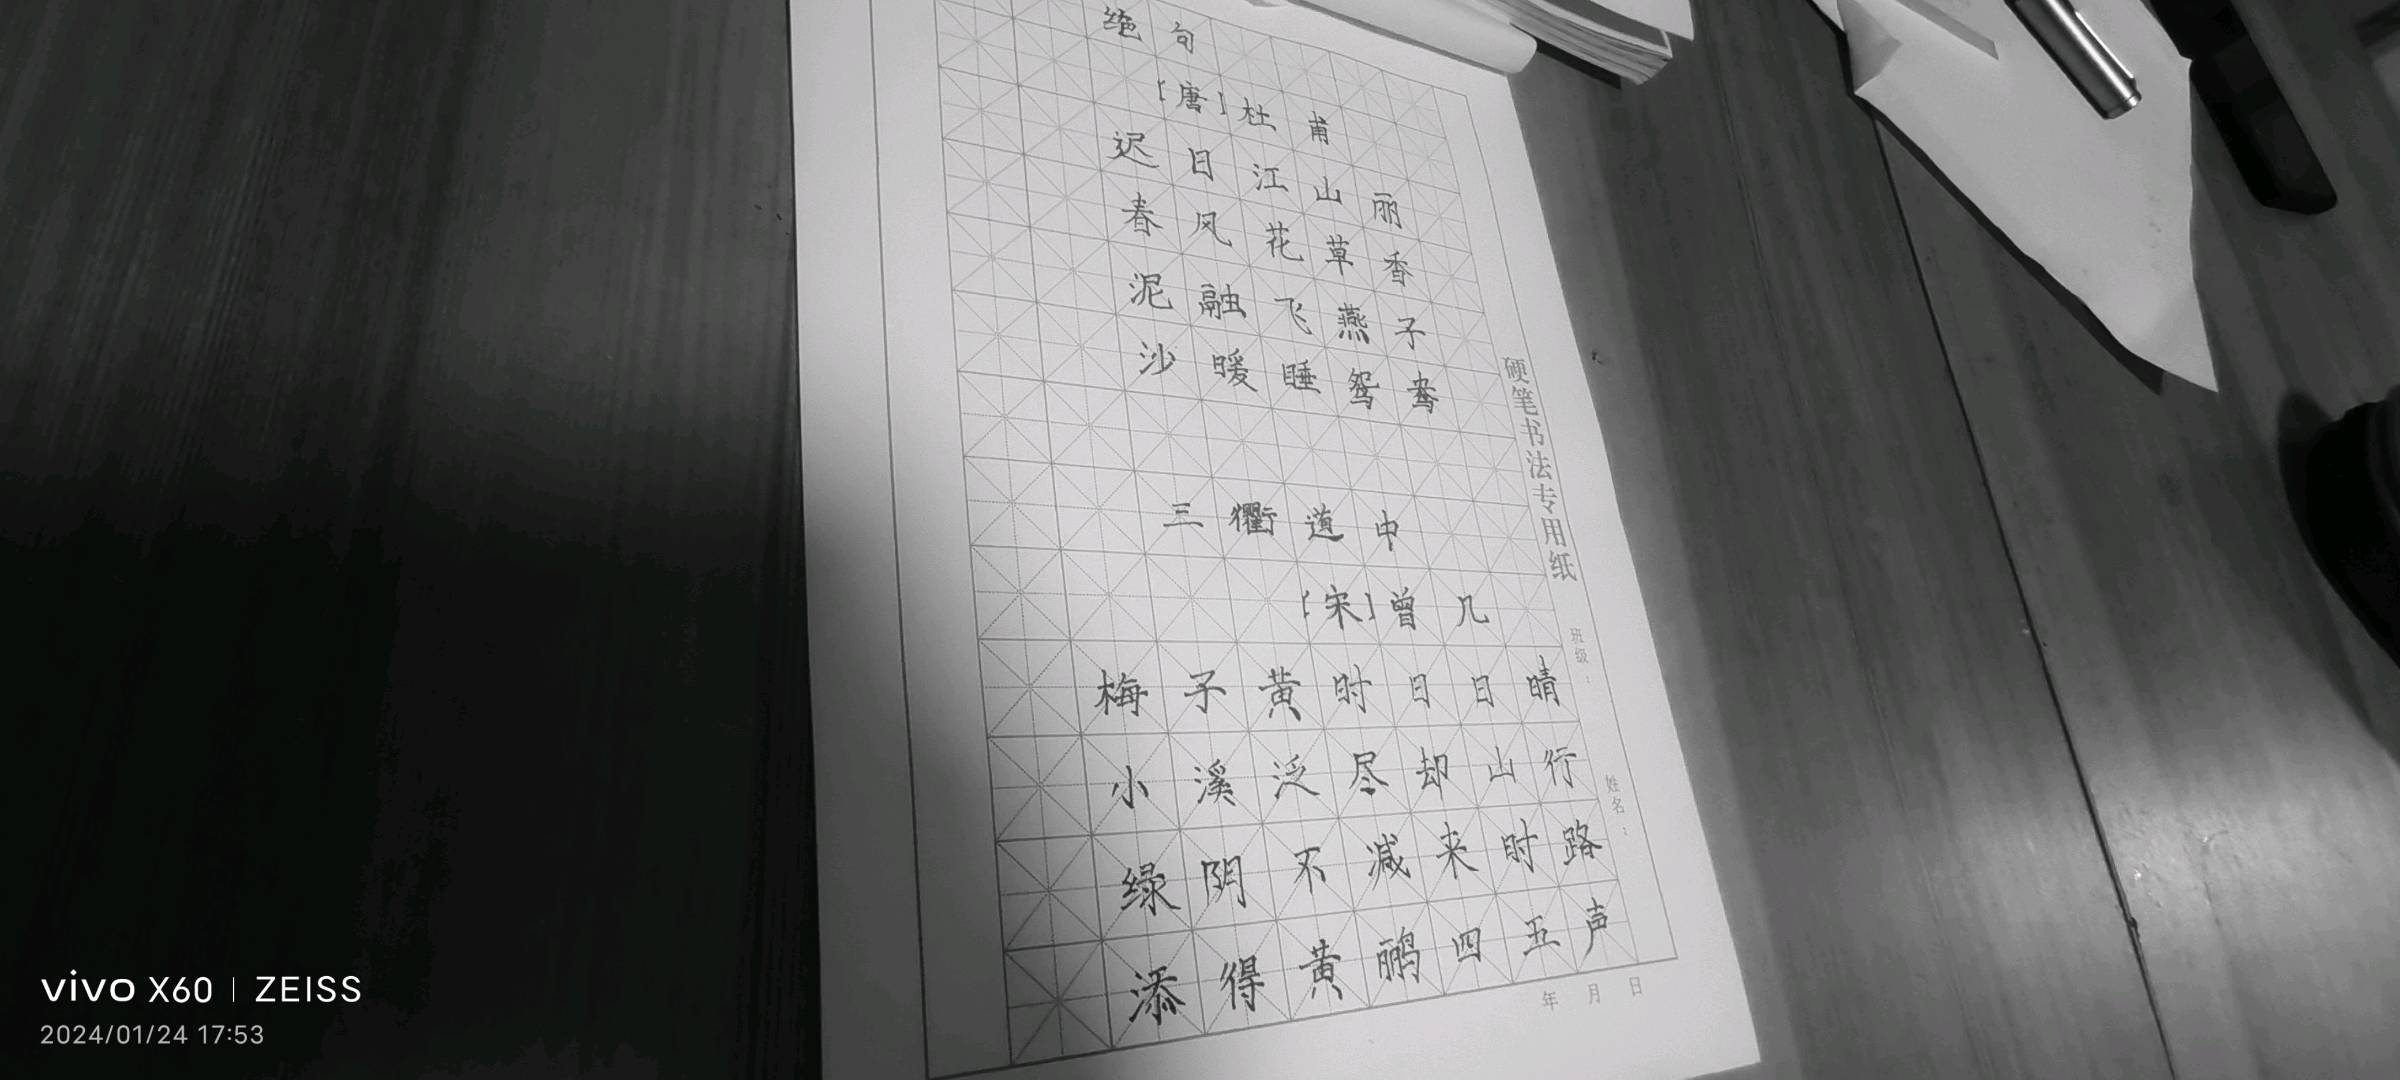 绝句
[唐]杜甫
迟日江山丽
春风花草香
泥融飞燕子
沙暖睡鸳鸯
三衢道中
[宋]曾几
梅子黄时日日晴
小溪泛尽却山行
绿阴不减来时路
添得黄鹂四五声
硬笔书法专用纸
班级：
姓名：
年 月 日
vivo X60 | ZEISS
2024/01/24 17:53